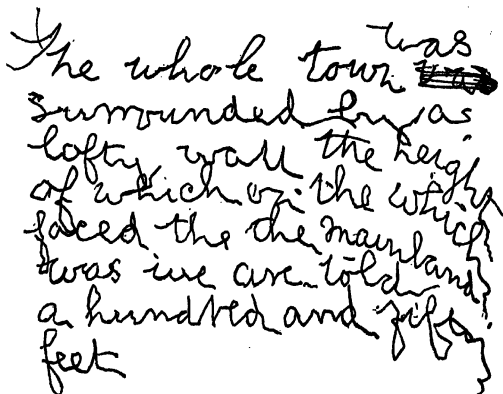 The whole town was
surrounded by as
lofty wall the heigh
of which on the which
faced the the mainland
was we are told
a hundred and fify
feet